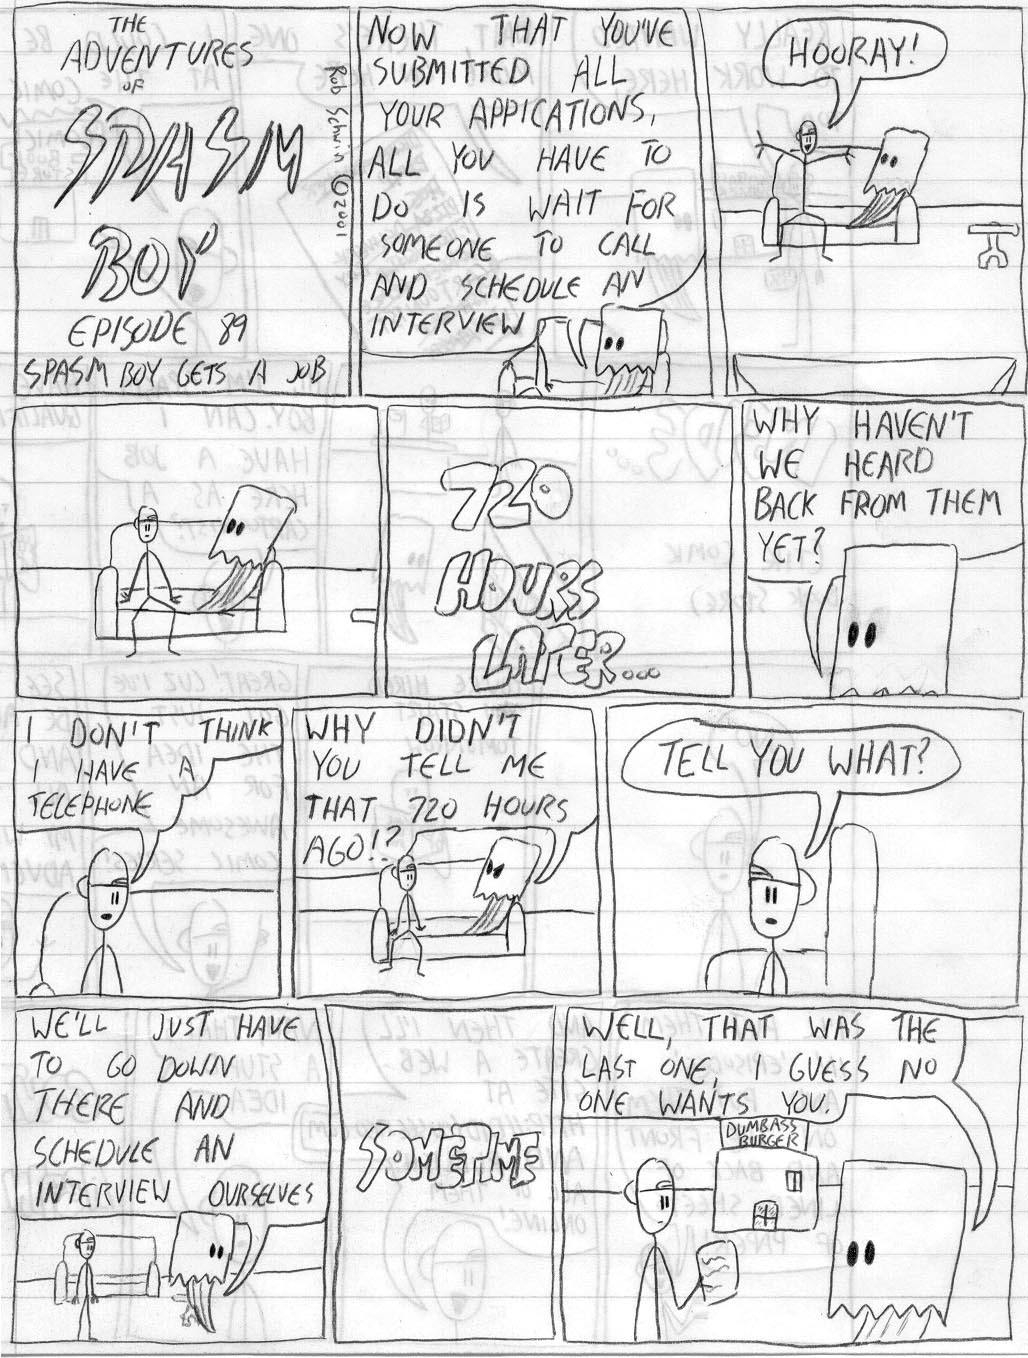 THE
ADVENTURES
OF
SPASM
BOY
EPISODE 89
SPASM BOY GETS A JOB
ROB SCHWIN ©2001
NOW THAT YOU'VE
SUBMITTED ALL
YOUR APPICATIONS,
ALL YOU HAVE TO
DO IS WAIT FOR
SOMEONE TO CALL
AND SCHEDULE AN
INTERVIEW
HOORAY!
720
HOURS
LATER...
WHY HAVEN'T
WE HEARD
BACK FROM THEM
YET?
I DON'T THINK
I HAVE A
TELEPHONE
WHY DIDN'T
YOU TELL ME
THAT 720 HOURS
AGO!?
TELL YOU WHAT?
WE'LL JUST HAVE
TO GO DOWN
THERE AND
SCHEDULE AN
INTERVIEW OURSELVES
SOMETIME
WELL, THAT WAS THE
LAST ONE, I GUESS NO
ONE WANTS YOU.
DUMBASS
BURGER